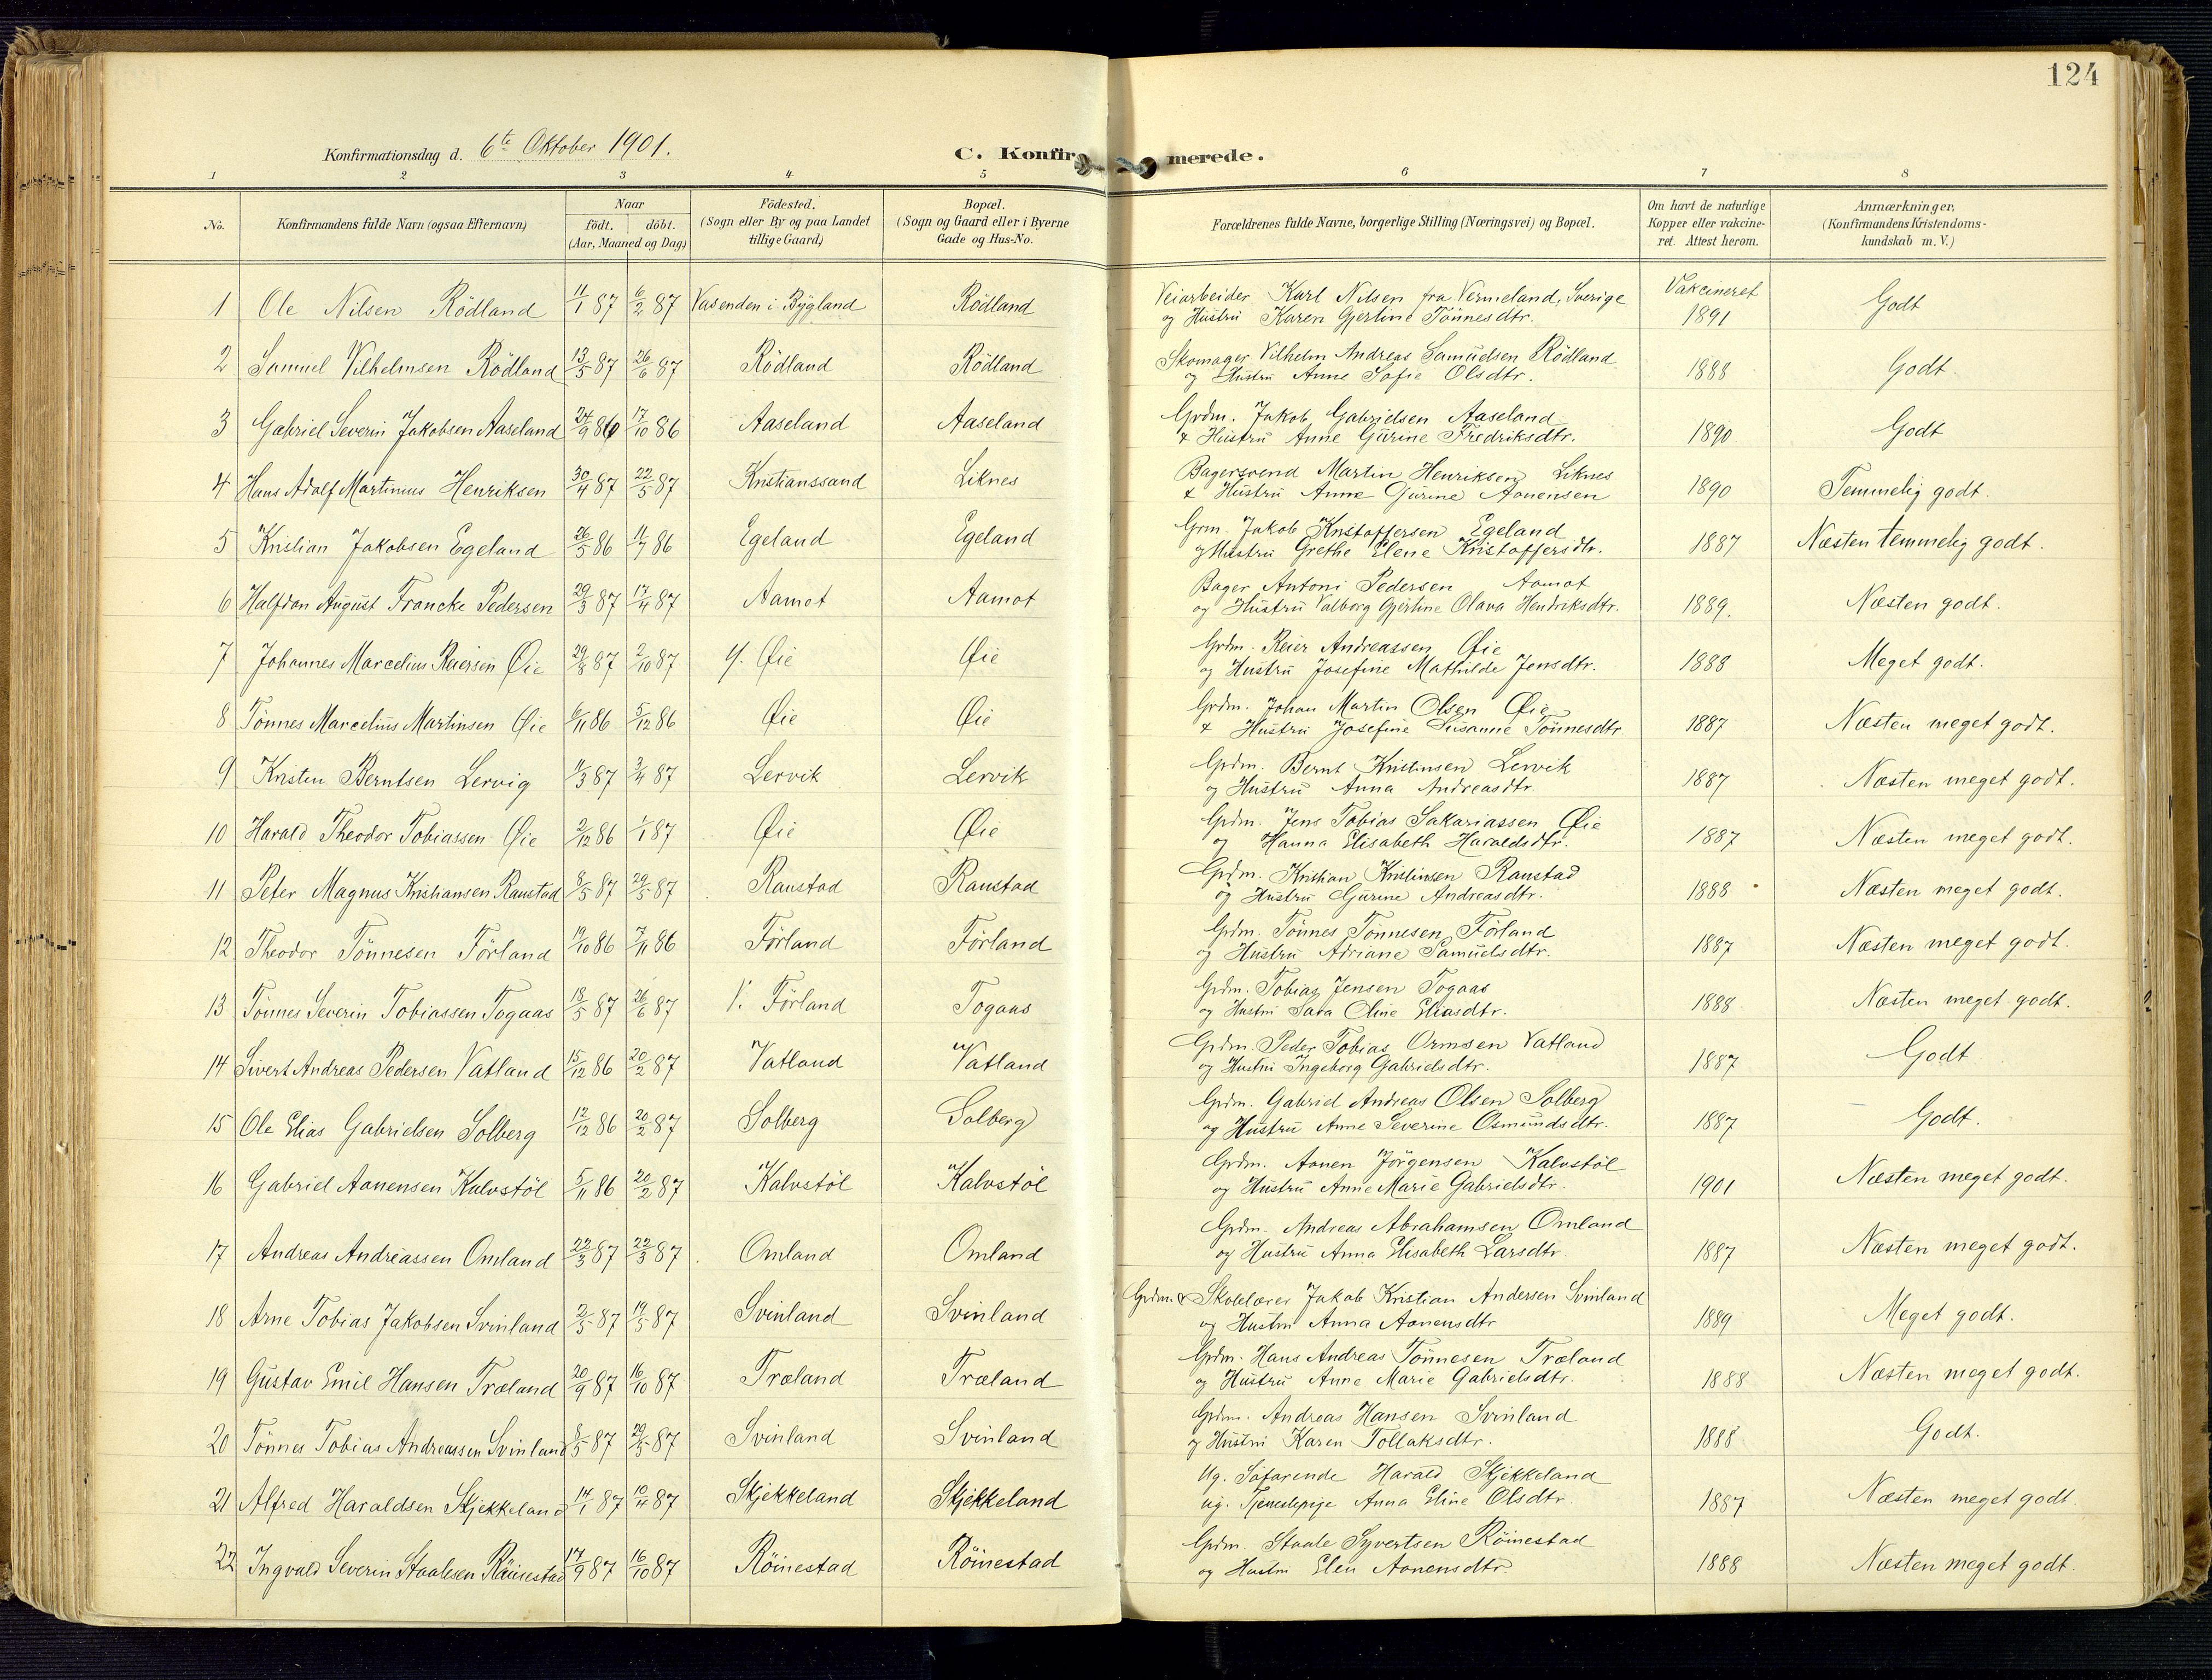 124
Konfirmationsdag d. 6te Oktober 1901.
C. Konfirmerede.
1 2 3 4 5 6 7 8
No. Konfirmandens fulde Navn (ogsaa Efternavn) Naar födt. döbt. (Aar, Maaned og Dag) Födested. (Sogn eller By og paa Landet tillige Gaard) Bopæl. (Sogn og Gaard eller i Byerne Gade og Hus-No. Forældrenes fulde Navne, borgerlige Stilling (Næringsvei) og Bopæl. Om havt de naturlige Kopper eller vakcineret. Attest herom. Anmærkninger, (Konfirmandens Kristendomskundskab m. V.)
1 Ole Nilsen Rödland 11/1 87 6/2 87 Vasenden i Bygland Rödland Veiarbeider Karl Nilsen fra Vermeland, Sverige Vakcineret Godt
og Hustru Karen Gjertine Tönnesdtr. 1891
2 Samuel Vilhelmsen Rödland 13/5 87 26/6 87 Rödland Rödland Skomager Vilhelm Andreas Samuelsen Rödland 1888 Godt
og Hustru Anne Sofie Olsdtr.
3 Gabriel Severin Jakobsen Aaseland 24/9 86 17/10 86 Aaseland Aaseland Grdm. Jakob Gabrielsen Aaseland 1890 Godt
& Hustru Anne Gurine Fredriksdtr.
4 Hans Adolf Martinius Henriksen 30/4 87 22/5 87 Kristianssand Liknes Bagersvend Martin Henriksen Liknes 1890 Temmelig godt.
& Hustru Anne Gurine Aanensen
5 Kristian Jakobsen Egeland 26/5 86 11/7 86 Egeland Egeland Grm. Jakob Kristoffersen Egeland 1887 Næsten temmelig godt.
og Hustru Grethe Elene Kristoffersdtr.
6 Halfdan August Francke Pedersen 29/3 87 17/4 87 Aamot Aamot Bager Antoni Pedersen Aamot 1889. Næsten godt.
og Hustru Valborg Gjertine Olava Hendriksdtr.
7 Johannes Marcelius Reiersen Øie 29/8 87 2/10 87 Y. Øie Øie Grdm. Reier Andreassen Øie 1888 Meget godt.
og Hustru Josefine Mathilde Jensdtr.
8 Tönnes Marcelius Martinsen Øie 6/11 86 5/12 86 Øie Øie Grdm. Johan Martin Olsen Øie 1887 Næsten meget godt.
& Hustru Josefine Susanne Tönnesdtr
9 Kristen Berntsen Lervig 11/3 87 3/4 87 Lervik Lervik Grdm. Bernt Kristinsen Lervik 1887 Næsten meget godt.
og Hustru Anna Andreasdtr.
10 Harald Theodor Tobiassen Øie 2/12 86 1/1 87 Øie Øie Grdm. Jens Tobias Sakariassen Øie 1887 Næsten meget godt.
og Hanna Elisabeth Haraldsdtr.
11 Peter Magnus Kristiansen Raustad 8/5 87 29/5 87 Raustad Raustad Grdm. Kristian Kristinsen Raustad 1888 Næsten meget godt.
og Hustru Gurine Andreasdtr.
12 Theodor Tönnesen Förland 19/10 86 7/11 86 Förland Förland Grdm. Tönnes Tönnesen Förland 1887 Næsten meget godt.
og Hustru Adriane Samuelsdtr.
13 Tönnes Severin Tobiassen Togaas 18/5 87 26/6 87 V. Förland Togaas Grdm. Tobias Jensen Togaas 1888 Næsten meget godt.
og Hustru Sara Oline Eliasdtr.
14 Sivert Andreas Pedersen Vatland 15/12 86 20/2 87 Vatland Vatland Grdm. Peder Tobias Ormsen Vatland 1887 Godt
og Hustru Ingeborg Gabrielsdtr.
15 Ole Elias Gabrielsen Solberg 12/12 86 20/2 87 Solberg Solberg Grdm. Gabriel Andreas Olsen Solberg 1887 Godt.
og Hustru Anne Severine Osmundsdtr.
16 Gabriel Aanensen Kalvstöl 5/11 86 20/2 87 Kalvstöl Kalvstöl Grdm. Aanen Jörgensen Kalvstöl 1901 Næsten meget godt.
og Hustru Anne Marie Gabrielsdtr.
17 Andreas Andreassen Omland 22/3 87 22/3 87 Omland Omland Grdm. Andreas Abrahamsen Omland 1887 Næsten meget godt.
og Hustru Anna Elisabeth Larsdtr.
18 Arne Tobias Jakobsen Svinland 2/5 87 19/5 87 Svinland Svinland Grdm. & Skolelærer Jakob Kristian Andersen Svinland 1889 Meget godt.
og Hustru Anna Aanensdtr
19 Gustav Emil Hansen Træland 20/9 87 16/10 87 Træland Træland Grdm. Hans Andreas Tönnesen Træland 1888 Næsten meget godt.
og Hustru Anne Marie Gabrielsdtr.
20 Tönnes Tobias Andreassen Svinland 8/5 87 29/5 87 Svinland Svinland Grdm. Andreas Hansen Svinland 1888 Godt.
og Hustru Karen Tollaksdtr.
21 Alfred Haraldsen Skjekkeland 14/1 87 10/4 87 Skjekkeland Skjekkeland Ug. Söfarende Harald Skjekkeland 1887 Næsten meget godt.
ug. Tjenestepige Anna Eline Olsdtr.
22 Ingvald Severin Staalesen Röinestad 17/9 87 16/10 87 Röinestad Röinestad Grdm. Staale Syvertsen Röinestad 1888 Næsten meget godt.
og Hustru Elen Aanensdtr.